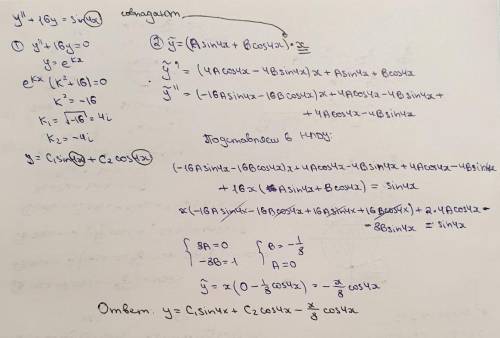 y'' + 16y = sin4x совпадают
① y'' + 16y = 0
y = e^kx
e^kx (k² + 16) = 0
k² = -16
k₁ = √-16 = 4i
k₂ = -4i
y = C₁sin4x + C₂cos4x
② ỹ = (Asin4x + Bcos4x)·x
ỹ' = (4Acos4x - 4Bsin4x)x + Asin4x + Bcos4x
ỹ'' = (-16Asin4x - 16Bcos4x)x + 4Acos4x - 4Bsin4x +
+ 4Acos4x - 4Bsin4x
Подставляем в НЛДУ:
(-16Asin4x - 16Bcos4x)x + 4Acos4x - 4Bsin4x + 4Acos4x - 4Bsin4x
+ 16x(Asin4x + Bcos4x) = sin4x
x(-16Asin4x - 16Bcos4x + 16Asin4x + 16Bcos4x) + 2·4Acos4x -
- 8Bsin4x = sin4x
{ 8A = 0 { B = -1/8
-8B = 1 A = 0
ỹ = x(0 - 1/8 cos4x) = -x/8 cos4x
Ответ. y = C₁sin4x + C₂cos4x - x/8 cos4x